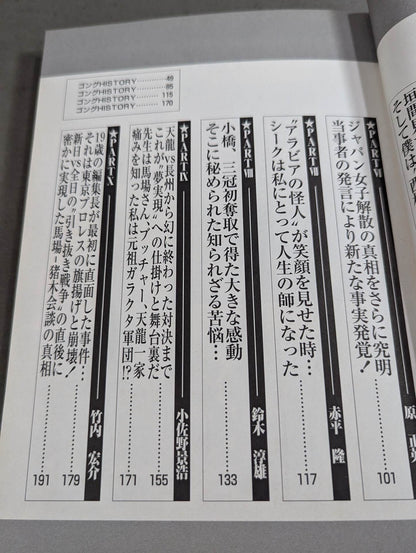 そして僕は
ゴングHISTORY
ゴングHISTORY………85
ゴングHISTORY………115
ゴングHISTORY………170
★PARTⅥ
ジャパン女子解散の真相をさらに究明
当事者の発言により新たな事実発覚！
101
★PARTⅦ 赤平 隆
“アラビアの怪人”が笑顔を見せた時…
シークは私にとって人生の師になった
117
★PARTⅧ 鈴木 淳雄
小橋、三冠初奪取で得た大きな感動
そこに秘められた知られざる苦悩…
133
★PARTⅨ 小佐野景浩
天龍vs長州から幻に終わった対決まで
これが“夢実現”への仕掛けと舞台裏だ
155
先生は馬場さん、ブッチャー、天龍一家
痛みを知った私は元祖ガラクタ軍団!?
171
★PARTⅩ 竹内 宏介
19歳の編集長が最初に直面した事件…
それは東京プロレスの旗揚げと崩壊！
179
新日vs全日の“引き抜き戦争”の直後に
密かに実現した馬場－猪木会談の真相
191